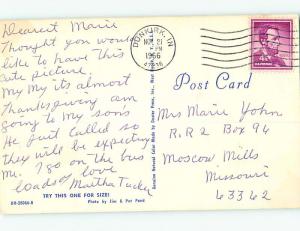 Dearest Marie
Thought you would
like to have this
cute picture
My My its almost
thanksgiving am
going to My sons
He just called so
they will be expecting
Me. I go on the bus
loads of love
Martha Tucker
TRY THIS ONE FOR SIZE!
Photo by Jim & Pat Pond
DUNKIRK, IN
NOV 21
PM
1966
Post Card
Mrs Marie John
R.R 2 Box 94
Moscow Mills
Missouri
63362